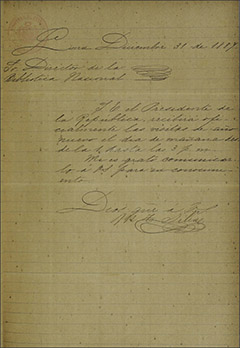 Lima, Diciembre 31 de 1887
Sr. Director de la
Biblioteca Nacional
S. E. el Presidente de
la República, recibirá ofi-
cialmente las visitas de año
nuevo el día de mañana des-
de la 1, hasta las 3 p. m.
Me es grato comunicar-
lo a US. para su conocimi-
ento
Dios gue. a US.